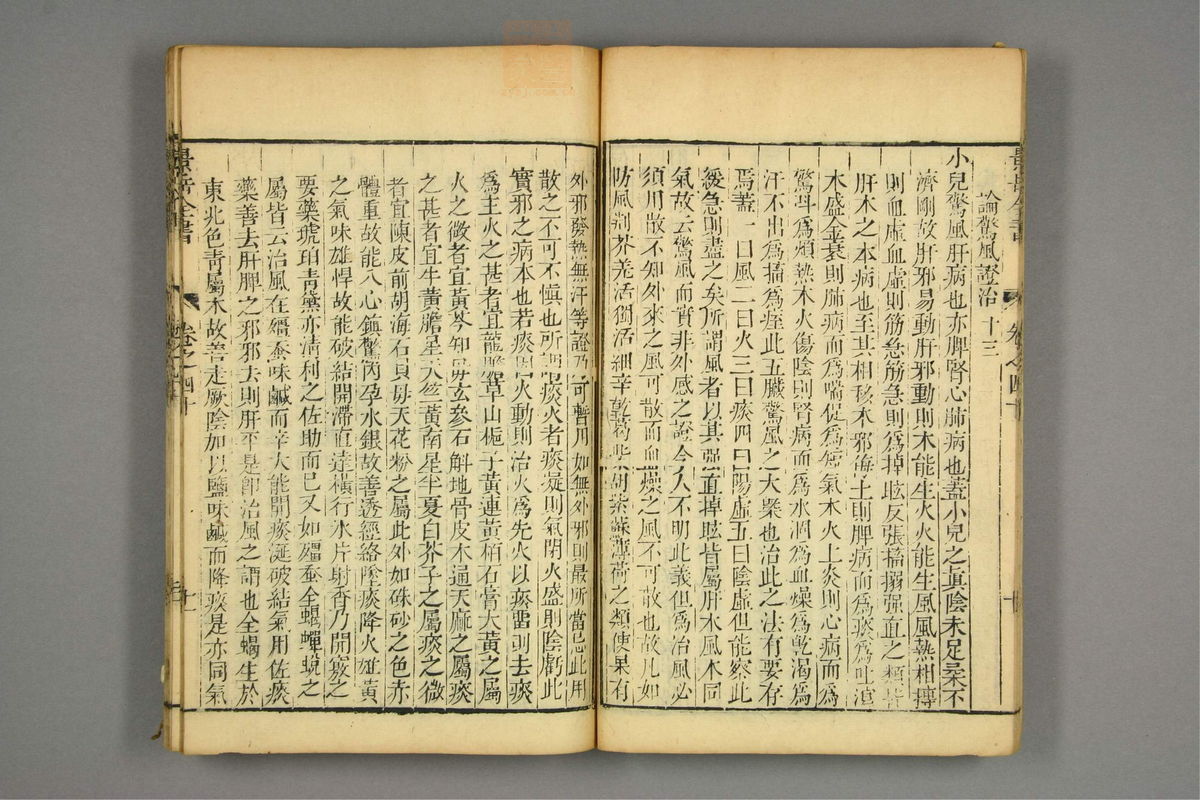 論驚風證治 十三
小兒驚風肝病也亦脾腎心肺病也蓋小兒之眞陰未足柔不
濟剛故肝邪易動肝邪動則木能生火火能生風風熱相摶
則血虛血虛則筋急筋急則爲掉眩反張搐搦强直之類皆
肝木之本病也至其相移木邪侮土則脾病而爲痰爲吐瀉
木盛金衰則肺病而爲喘促爲短氣木火上炎則心病而爲
驚叫爲煩熱木火傷陰則腎病而爲水涸爲血燥爲乾渴爲
汗不出爲搐爲痙此五臟驚風之大槩也治此之法有要存
焉蓋一曰風二曰火三曰痰四曰陽虛五曰陰虛但能察此
緩急則盡之矣所謂風者以其强直掉眩皆屬肝木風木同
氣故云驚風而實非外感之證今人不明此義但爲治風必
須用散不知外來之風可散而血燥之風不可散也故凡如
防風荆芥羌活獨活細辛乾葛柴胡紫蘇薄荷之類使果有
外邪發熱無汗等證乃可暫用如無外邪則最所當忌此用
散之不可不慎也所謂痰火者痰凝則氣閉火盛則陰虧此
實邪之病本也若痰因火動則治火爲先火以痰留則去痰
爲主火之甚者宜龍膽草山梔子黃連黃栢石膏大黃之屬
火之微者宜黃芩知母玄參石斛地骨皮木通天麻之屬痰
之甚者宜牛黃膽星天竺黃南星半夏白芥子之屬痰之微
者宜陳皮前胡海石貝母天花粉之屬此外如硃砂之色赤
體重故能入心鎮驚內孕水銀故善透經絡墜痰降火雄黃
之氣味雄悍故能破結開滯直達橫行氷片射香乃開竅之
要藥琥珀靑黛亦清利之佐助而已又如殭蚕全蝎蟬蛻之
屬皆云治風在殭蚕味鹹而辛大能開痰涎破結氣用佐痰
藥善去肝脾之邪邪去則肝平是卽治風之謂也全蝎生於
東北色靑屬木故善走厥陰加以鹽味鹹而降痰是亦同氣
景岳全書
卷之四十